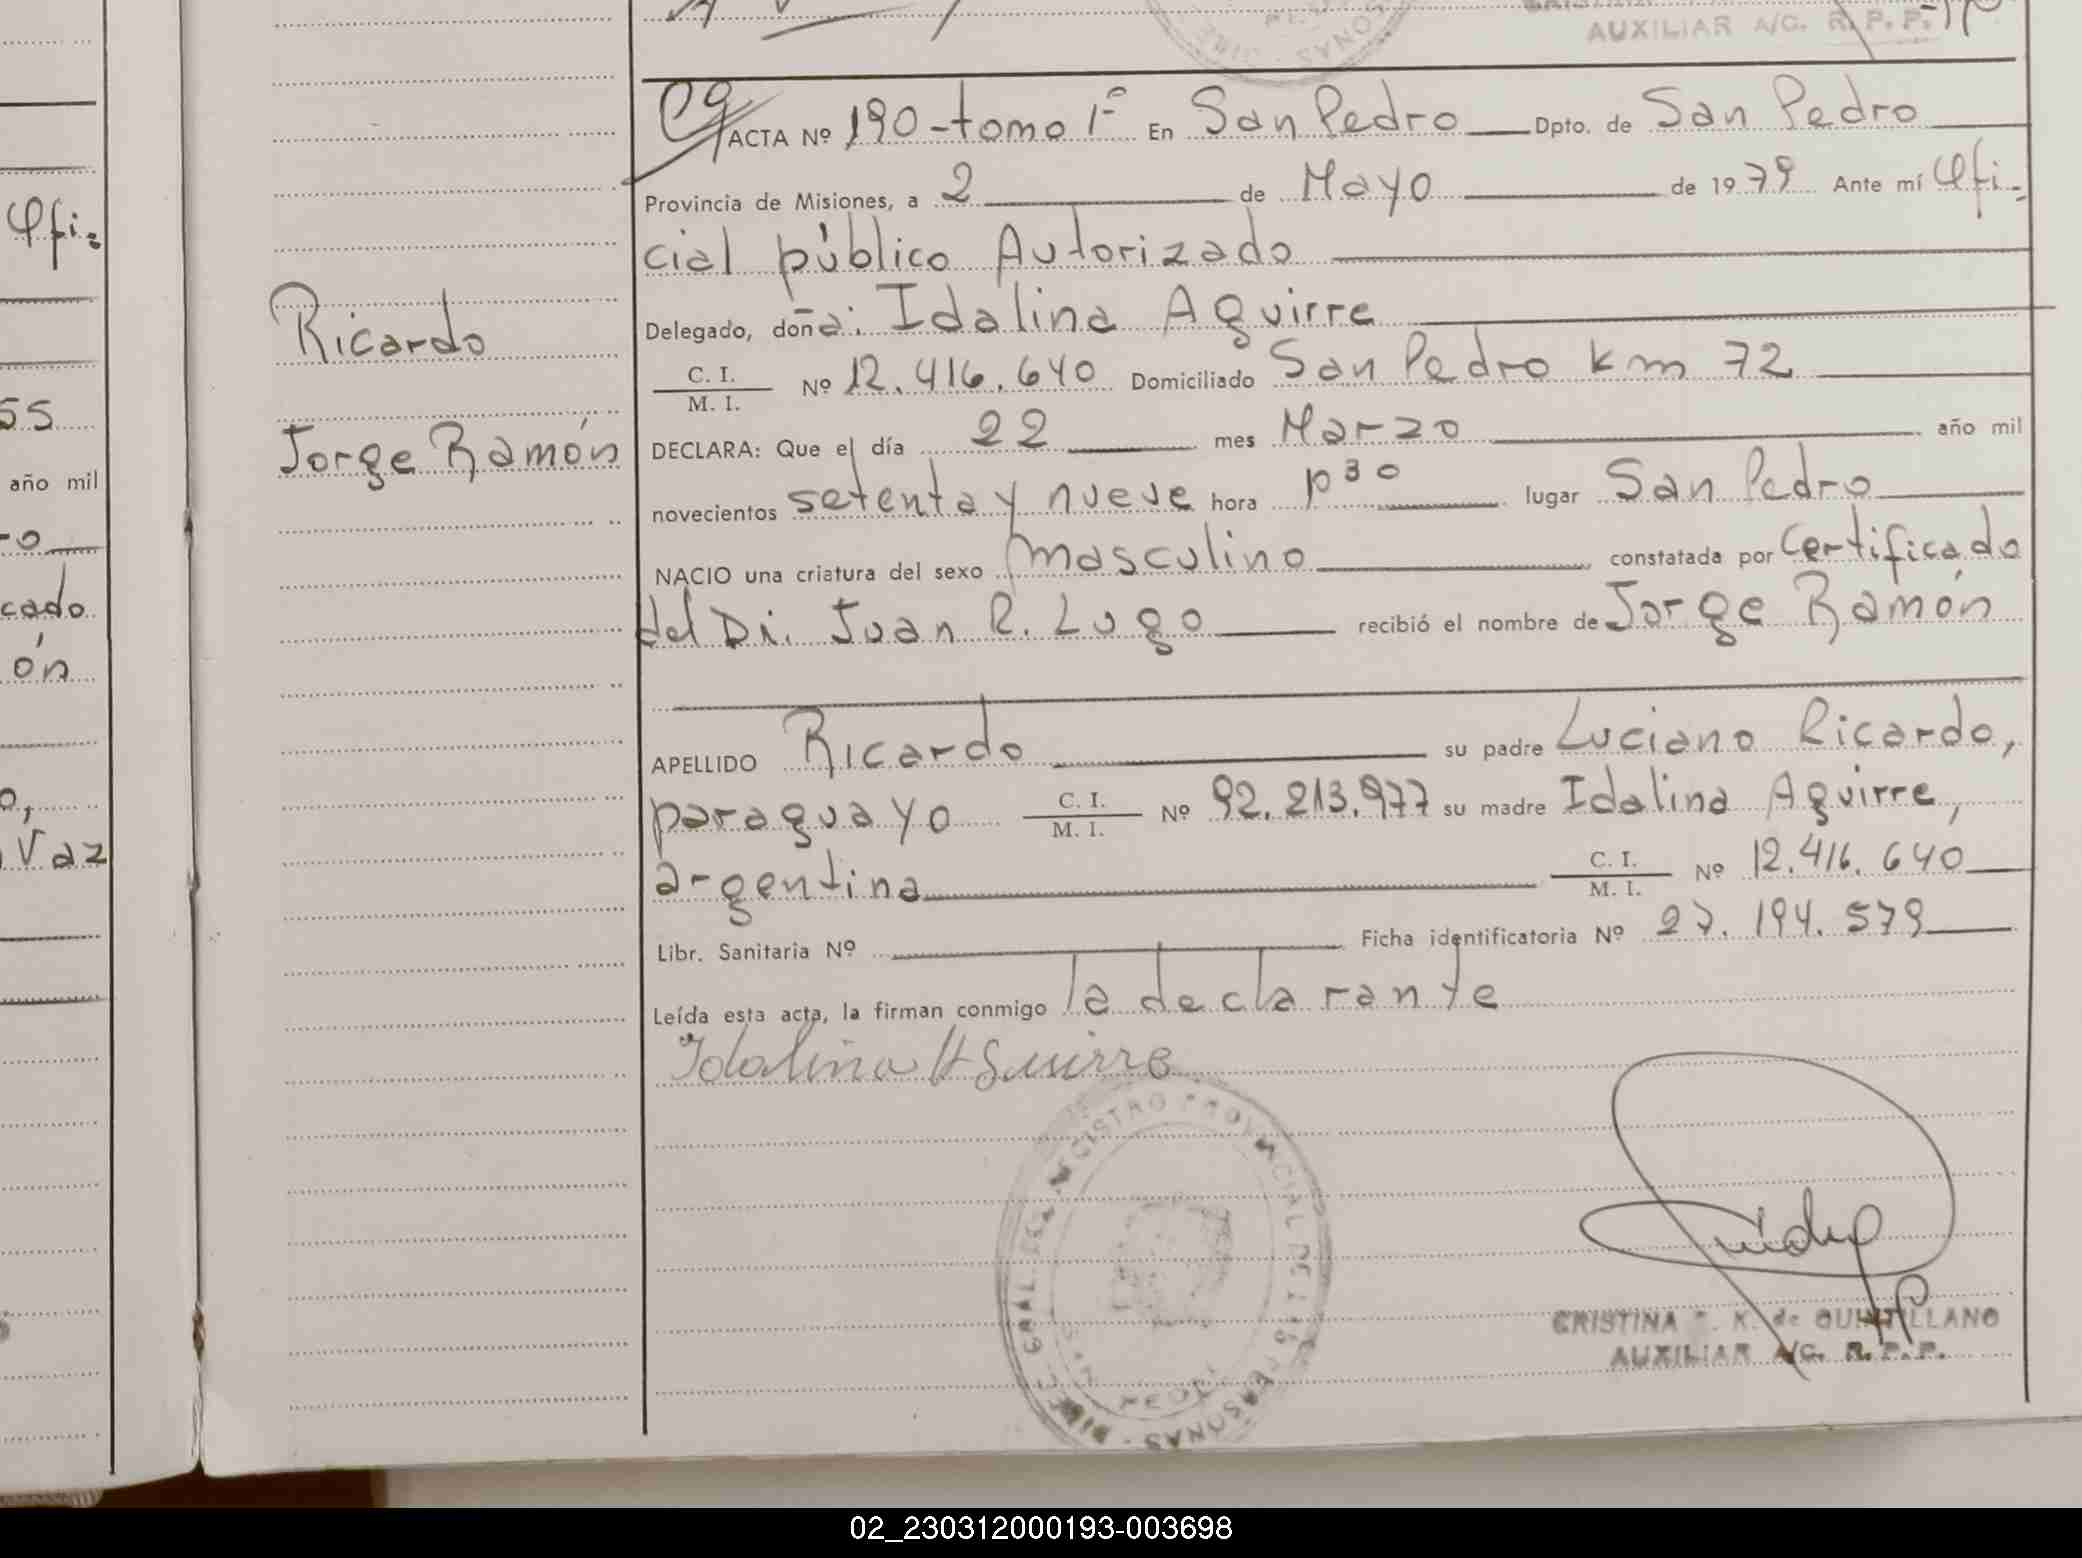 AUXILIAR A/C. R. P. P.
ACTA Nº 190-tomo 1º En San Pedro Dpto. de San Pedro
Provincia de Misiones, a 2 de Mayo de 1979 Ante mí Ofi-
cial público Autorizado
Delegado, doña: Idalina Aguirre
C. I. / M. I. Nº 12.416.640 Domiciliado San Pedro km 72
DECLARA: Que el día 22 mes Marzo año mil
novecientos setenta y nueve hora lugar San Pedro
NACIO una criatura del sexo masculino constatada por Certificado
del Dr. Juan R. Lugo recibió el nombre de Jorge Ramón
APELLIDO Ricardo su padre Luciano Ricardo,
paraguayo C. I. / M. I. Nº 92.213.977 su madre Idalina Aguirre,
argentina C. I. / M. I. Nº 12.416.640
Libr. Sanitaria Nº Ficha identificatoria Nº 27.194.579
Leída esta acta, la firman conmigo la declarante
Idalina Aguirre
Ricardo
Jorge Ramón
REGISTRO PROVINCIAL DE LAS PERSONAS
CRISTINA K. de QUINTILLANO
AUXILIAR A/C. R. P. P.
Ofi-
55
año mil
cado
ón
Vaz
02_230312000193-003698